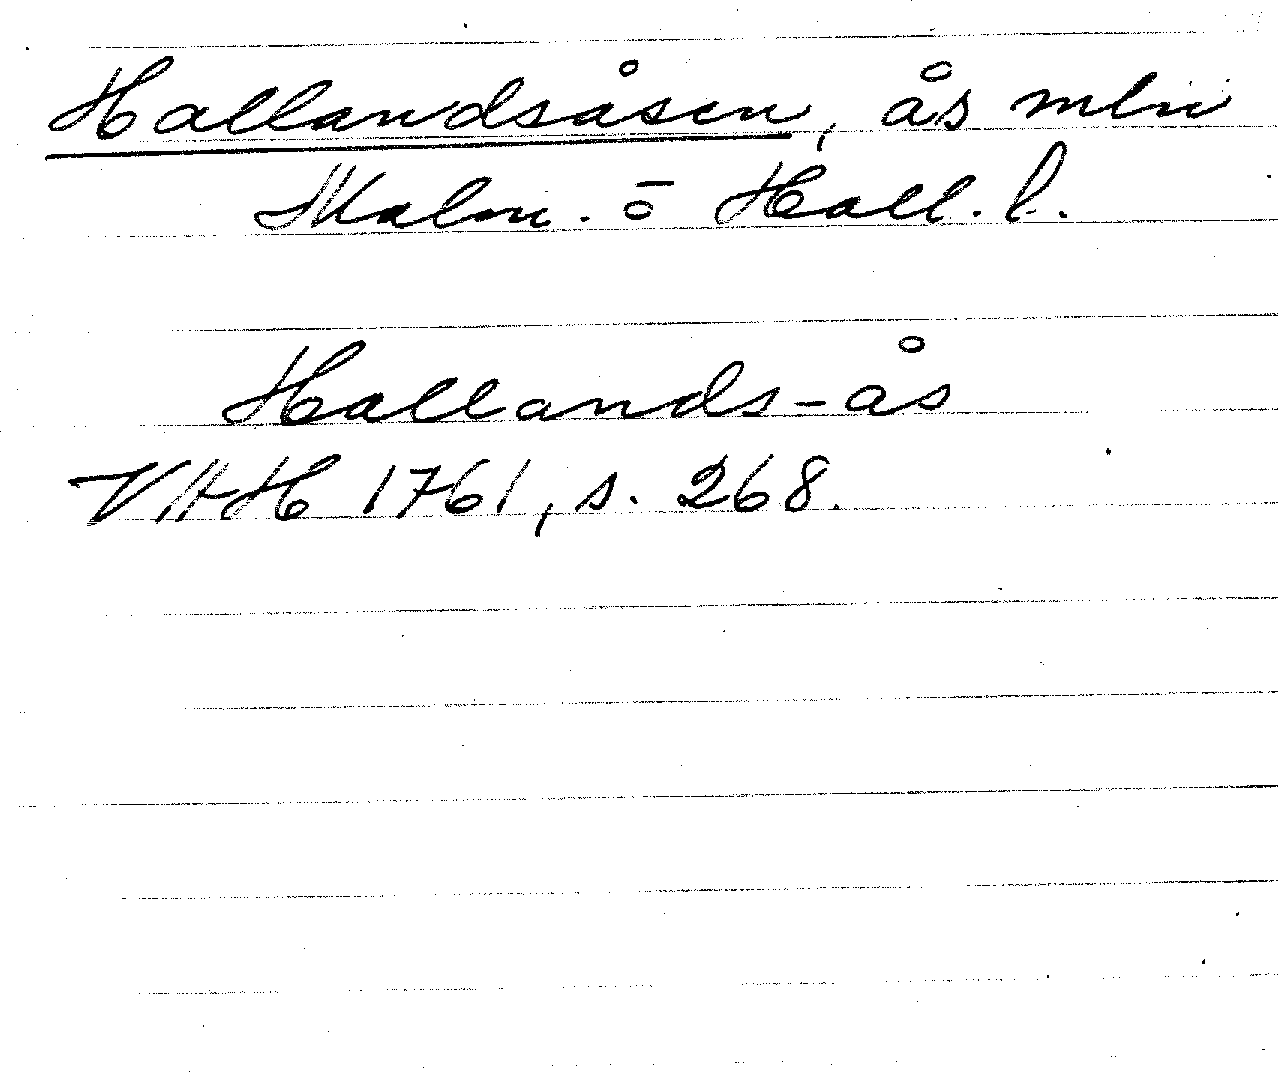 Hallandsåsen, ås mln
Malm. o Hall. l.
Hallands-ås
VAH 1761, s. 268.